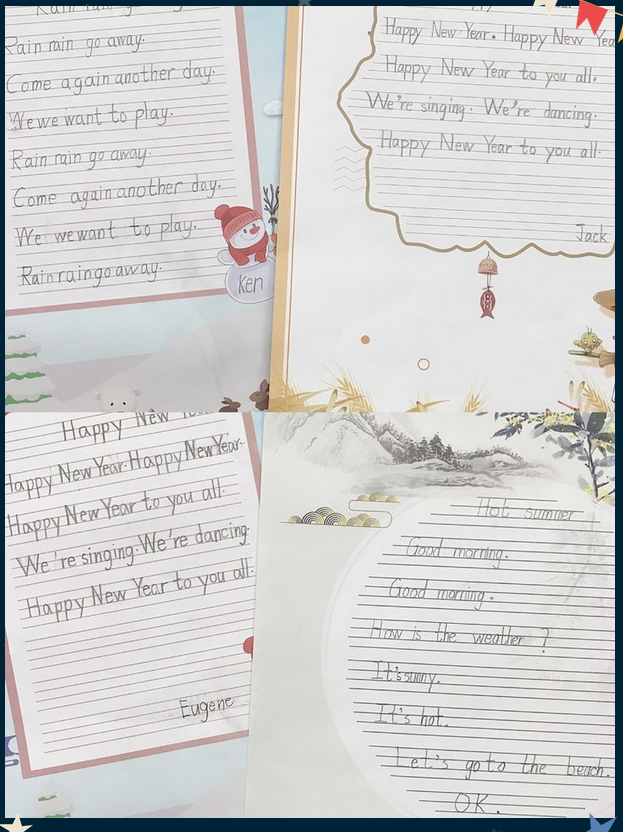 Rain rain go away.
Come again another day.
We we want to play.
Rain rain go away.
Come again another day.
We we want to play.
Rain rain go away.
Ken
Happy New Year. Happy New Yea
Happy New Year to you all.
We're singing. We're dancing.
Happy New Year to you all.
Jack
Happy New
Happy New Year. Happy New Year.
Happy New Year to you all.
We're singing. We're dancing.
Happy New Year to you all.
Eugene
Hot sumuer
Good morning.
Good morning.
How is the weather ?
It's sunny.
It's hot.
Let's go to the beach.
OK.